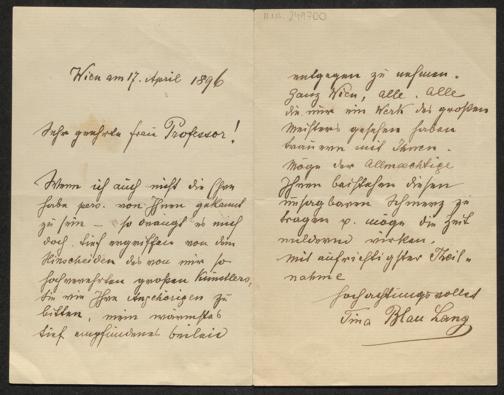 H.I.N. 249700
Wien am 17. April 1896
Sehr geehrte Frau Professor!
Wenn ich auch nicht die Ehre
habe pers. von Ihnen gekannt
zu sein — so drängt es mich
doch tief ergriffen von dem
Hinscheiden des von mir so
hochverehrten großen Künstlers,
Sie wie Ihre Angehörigen zu
bitten, mein wärmstes
tief empfundenes Beileid
entgegen zu nehmen.
Ganz Wien, alle, alle
die nur ein Werk des großen
Meisters gesehen haben
trauern mit Ihnen.
Möge der Allmächtige
Ihnen beistehen diesen
unsagbaren Schmerz zu
tragen u. möge die Zeit
mildernd wirken.
Mit aufrichtigster Theil-
nahme
hochachtungsvollst
Tina Blau Lang